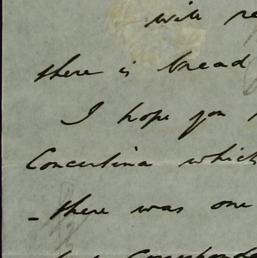 will re
there is bread
I hope you
Concertina which
- there was one